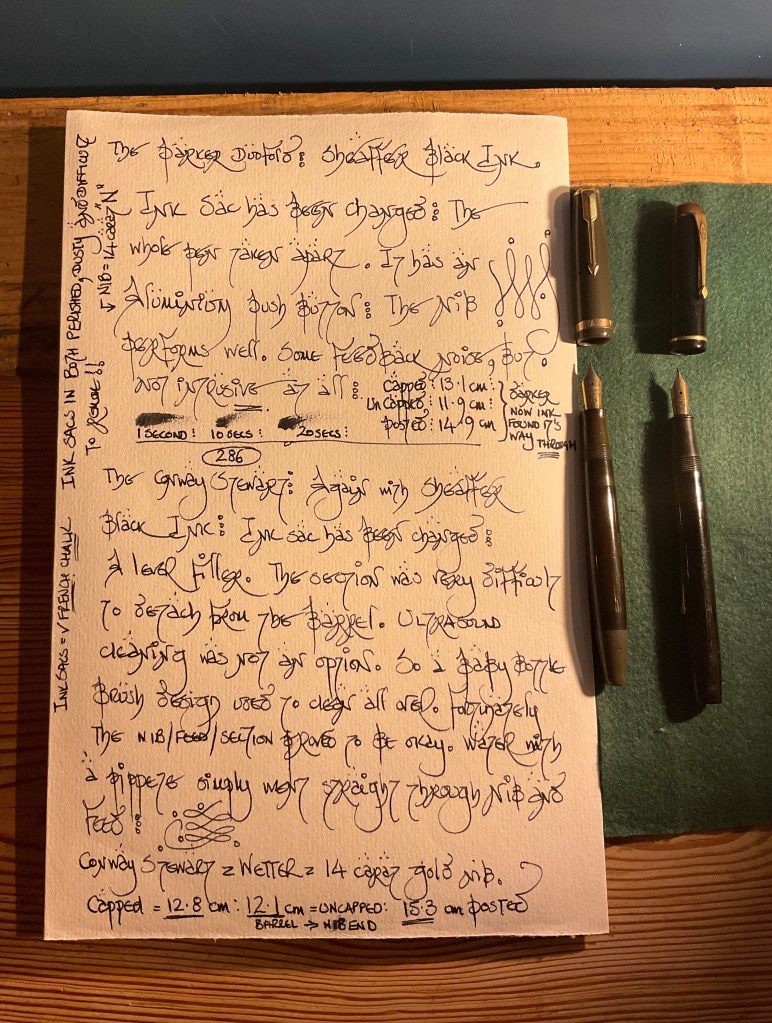 The Parker Duofold: Sheaffer Black Ink.
Ink sac has been changed: The
whole pen taken apart. It has an
Aluminium push button: The nib
performs well. Some feedback noise, but
not intrusive at all:
Capped: 13.1 cm:
Uncapped: 11.9 cm:
Posted: 14.9 cm
Parker
now ink
found it's
way
through
1 second: 10 secs: 20 secs:
286
The Conway Stewart: Again with Sheaffer
Black Ink: Ink sac has been changed:
A lever filler. The section was very difficult
to detach from the barrel. Ultrasound
cleaning was not an option. So a baby bottle
brush design used to clean all over. Fortunately
the nib/feed/section proved to be okay. Water with
a pippete simply went straight through nib and
feed:
Conway Stewart = Wetter = 14 carat gold nib.
Capped = 12.8 cm: 12.1 cm = uncapped: 15.3 cm posted
Barrel → nib end
Ink sacs = √ French chalk
Ink sacs in both perished, dusty and difficult
to remove!!
→ Nib = 14 carat "N"